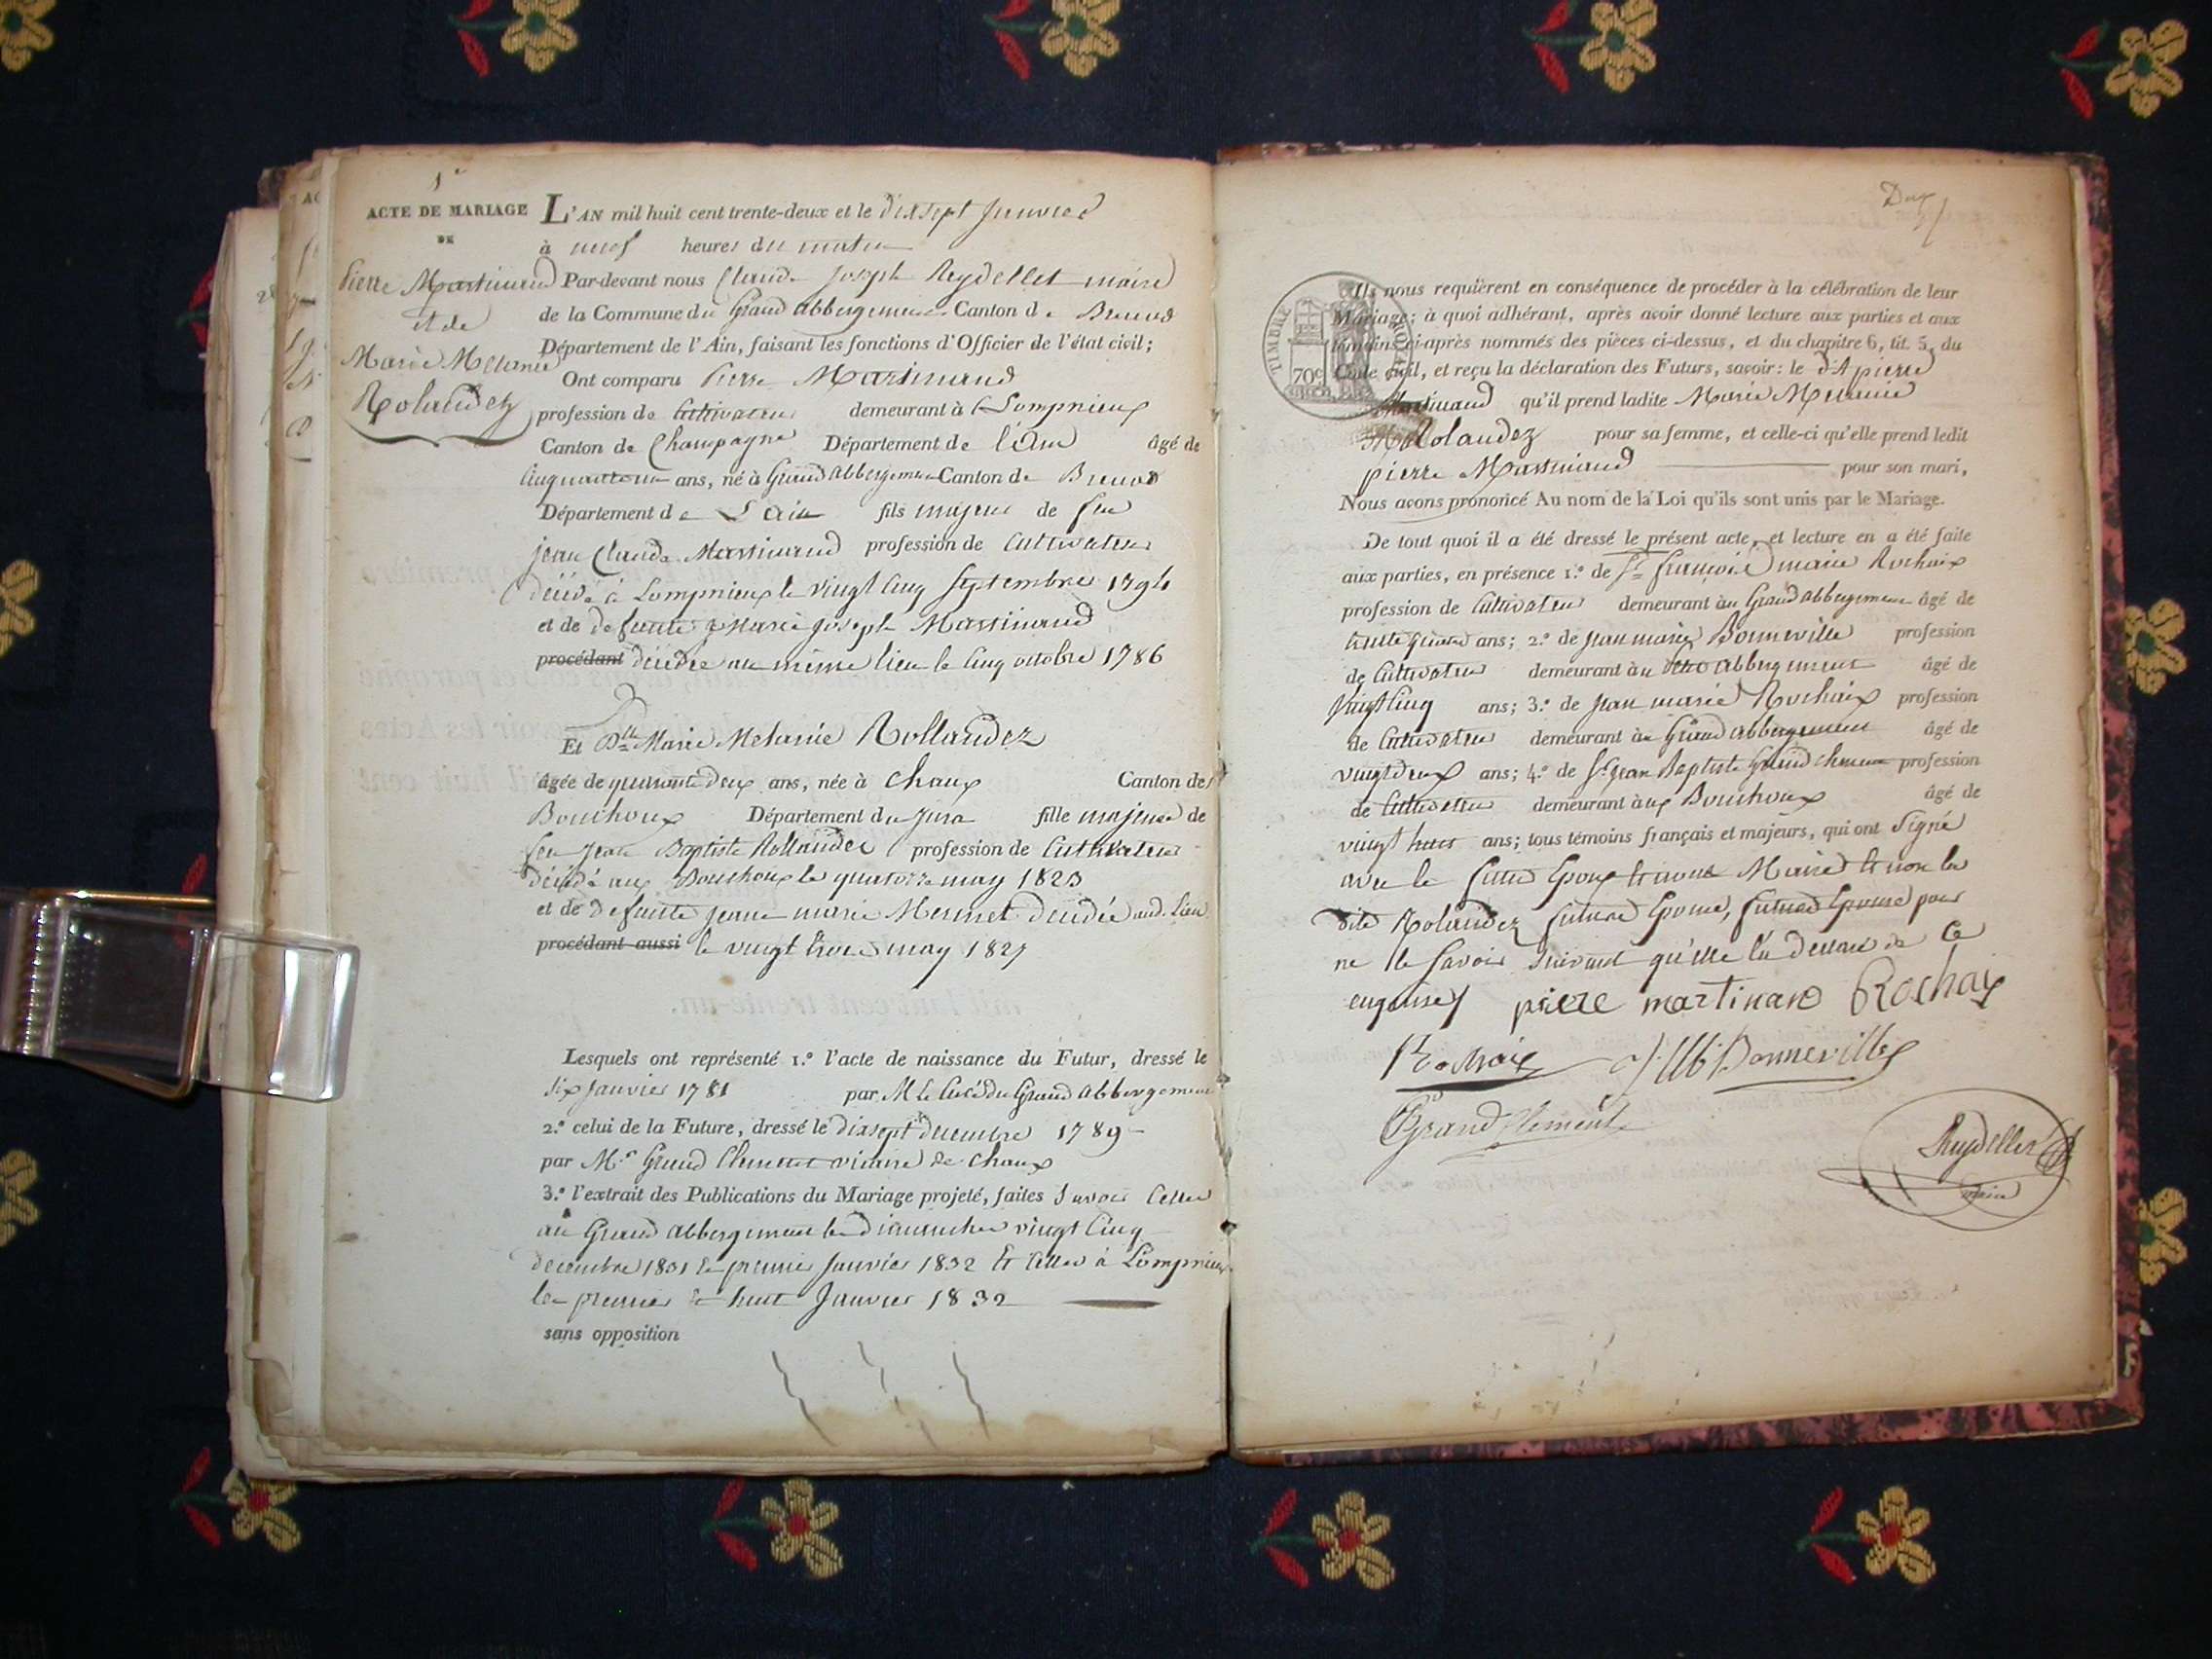 1er
ACTE DE MARIAGE
DE
Pierre Martinand
et de
Marie Melanie
Rolandez
L'AN mil huit cent trente-deux et le dixsept janvier
à neuf heures du matin
Par-devant nous Claude Joseph Reydellet maire
de la Commune du Grand abbergement Canton de Brenod
Département de l'Ain, faisant les fonctions d'Officier de l'état civil;
Ont comparu Pierre Martinand
profession de Cultivateur demeurant à Lompnieux
Canton de Champagne Département de l'Ain âgé de
Cinquante un ans, né à Grand Abbergement Canton de Brenod
Département de L'ain fils majeur de feu
jean Claude Martinand profession de Cultivateur
décédé à Lompnieux le vingt cinq Septembre 1794
et de defunte Marie Joseph Martinand
procédant décédée au même lieu le cinq octobre 1786
Et Dlle Marie Melanie Rollandez
âgée de quarante deux ans, née à Chaux Canton des
Bouchoux Département du Jura fille majeure de
feu Jean Baptiste Rollandez profession de Cultivateur
décédé aux Bouchoux le quatorze may 1823
et de defunte jeanne marie Mermet décédée aud. Lieu
procédant aussi le vingt trois may 1827
Lesquels ont représenté 1.° l'acte de naissance du Futur, dressé le
Six Janvier 1781 par M le Curé du Grand Abbergement
2.° celui de la Future, dressé le dixsept decembre 1789
par M.r Grand Clement vicaire de Chaux
3.° l'extrait des Publications du Mariage projeté, faites Savoir Celles
au Grand abbergement les dimanches vingt Cinq
decembre 1831 & premier Janvier 1832 Et Celles à Lompnieux
les premier & huit Janvier 1832
sans opposition
Deux
TIMBRE ROYAL
70c
Ils nous requièrent en conséquence de procéder à la célébration de leur
Mariage; à quoi adhérant, après avoir donné lecture aux parties et aux
témoins ci-après nommés des pièces ci-dessus, et du chapitre 6, tit. 5, du
Code civil, et reçu la déclaration des Futurs, savoir: le dit pierre
Martinand qu'il prend ladite Marie Melanie
Rolandez pour sa femme, et celle-ci qu'elle prend ledit
pierre Martinand pour son mari,
Nous avons prononcé Au nom de la Loi qu'ils sont unis par le Mariage.
De tout quoi il a été dressé le présent acte, et lecture en a été faite
aux parties, en présence 1.° de Sr françois marie Rochaix
profession de Cultivateur demeurant au Grand abbergement âgé de
trente quatre ans; 2.° de jean marie Bonneville profession
de Cultivateur demeurant au abbergement âgé de
vingt Cinq ans; 3.° de jean marie Rochaix profession
de Cultivateur demeurant au Grand abbergement âgé de
vingt deux ans; 4.° de Sr jean Baptiste Grand Clement profession
de Cultivateur demeurant aux Bouchoux âgé de
vingt huit ans; tous témoins français et majeurs, qui ont Signé
avec le futur Epoux et nous Maire et non la
dite Rolandez future Epouse, future Epouse pour
ne le Savoir Suivant qu'elle l'a declaré de Ce
enquise / piere martinand Rochaix
Rochaix J M Bonneville
Grand Clement
Reydellet
maire